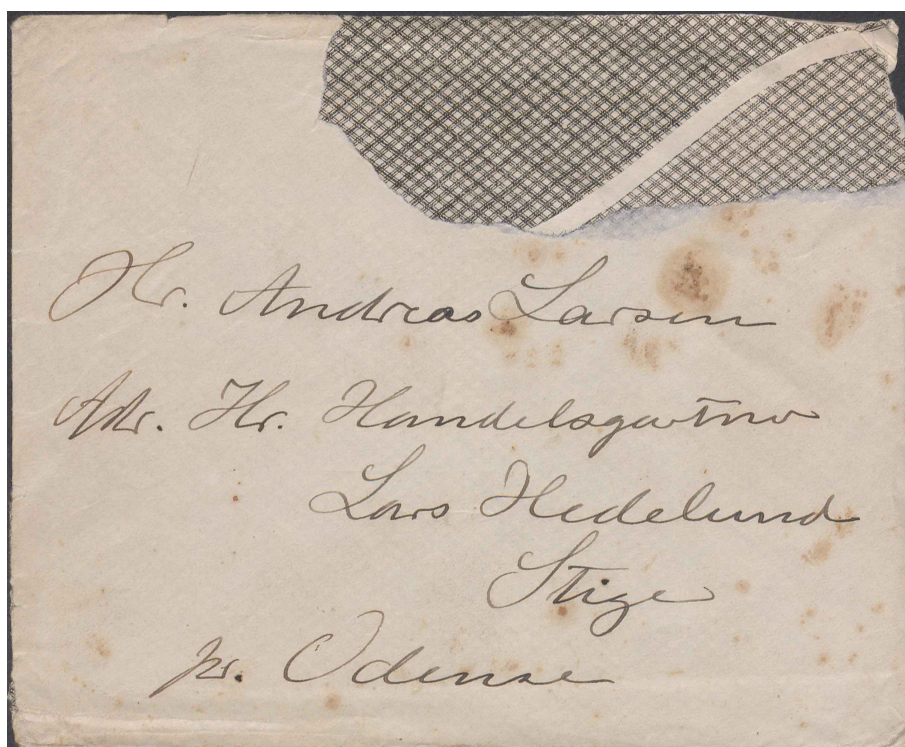 Hr. Andreas Larsen
Adr. Hr. Handelsgartner
Lars Hedelund
Stige
pr. Odense